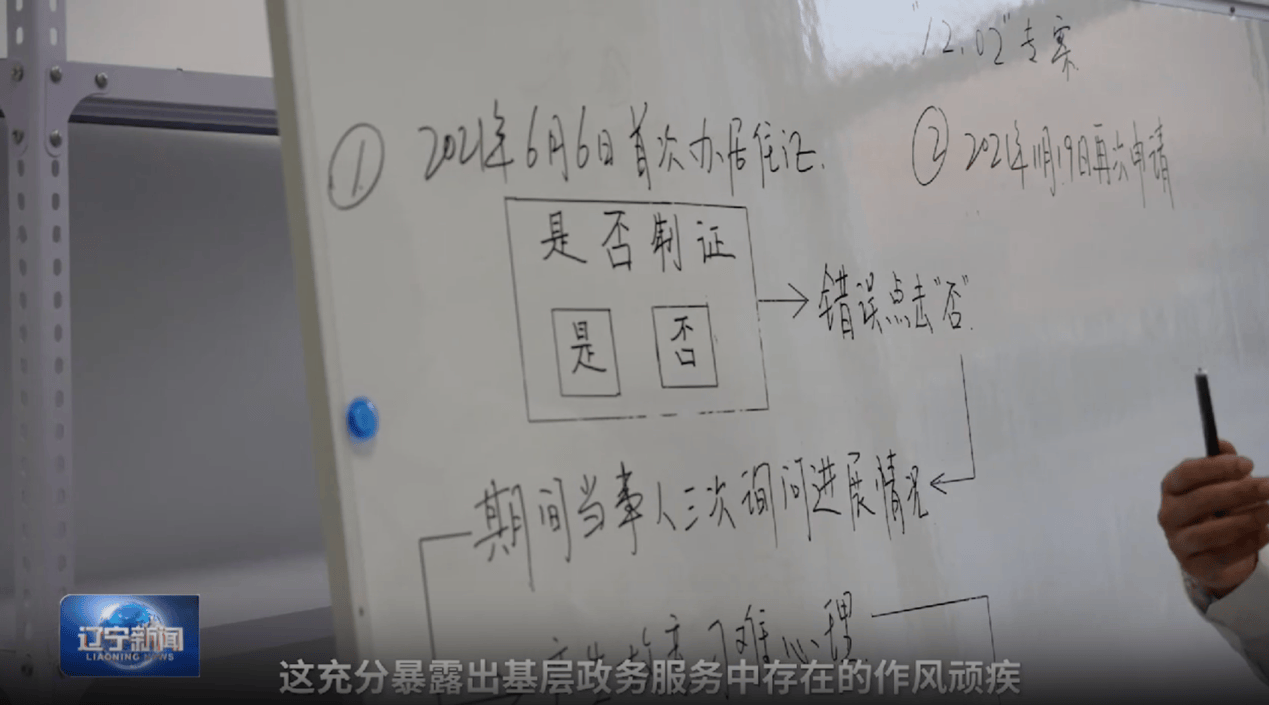 "12.02"专案
① 2021年6月6日首次办居住证.
② 2021年11月19日再次申请
是否制证
是 否
错误点击"否".
期间当事人三次询问进展情况
产生故意刁难心理
辽宁新闻
LIAONING NEWS
这充分暴露出基层政务服务中存在的作风顽疾